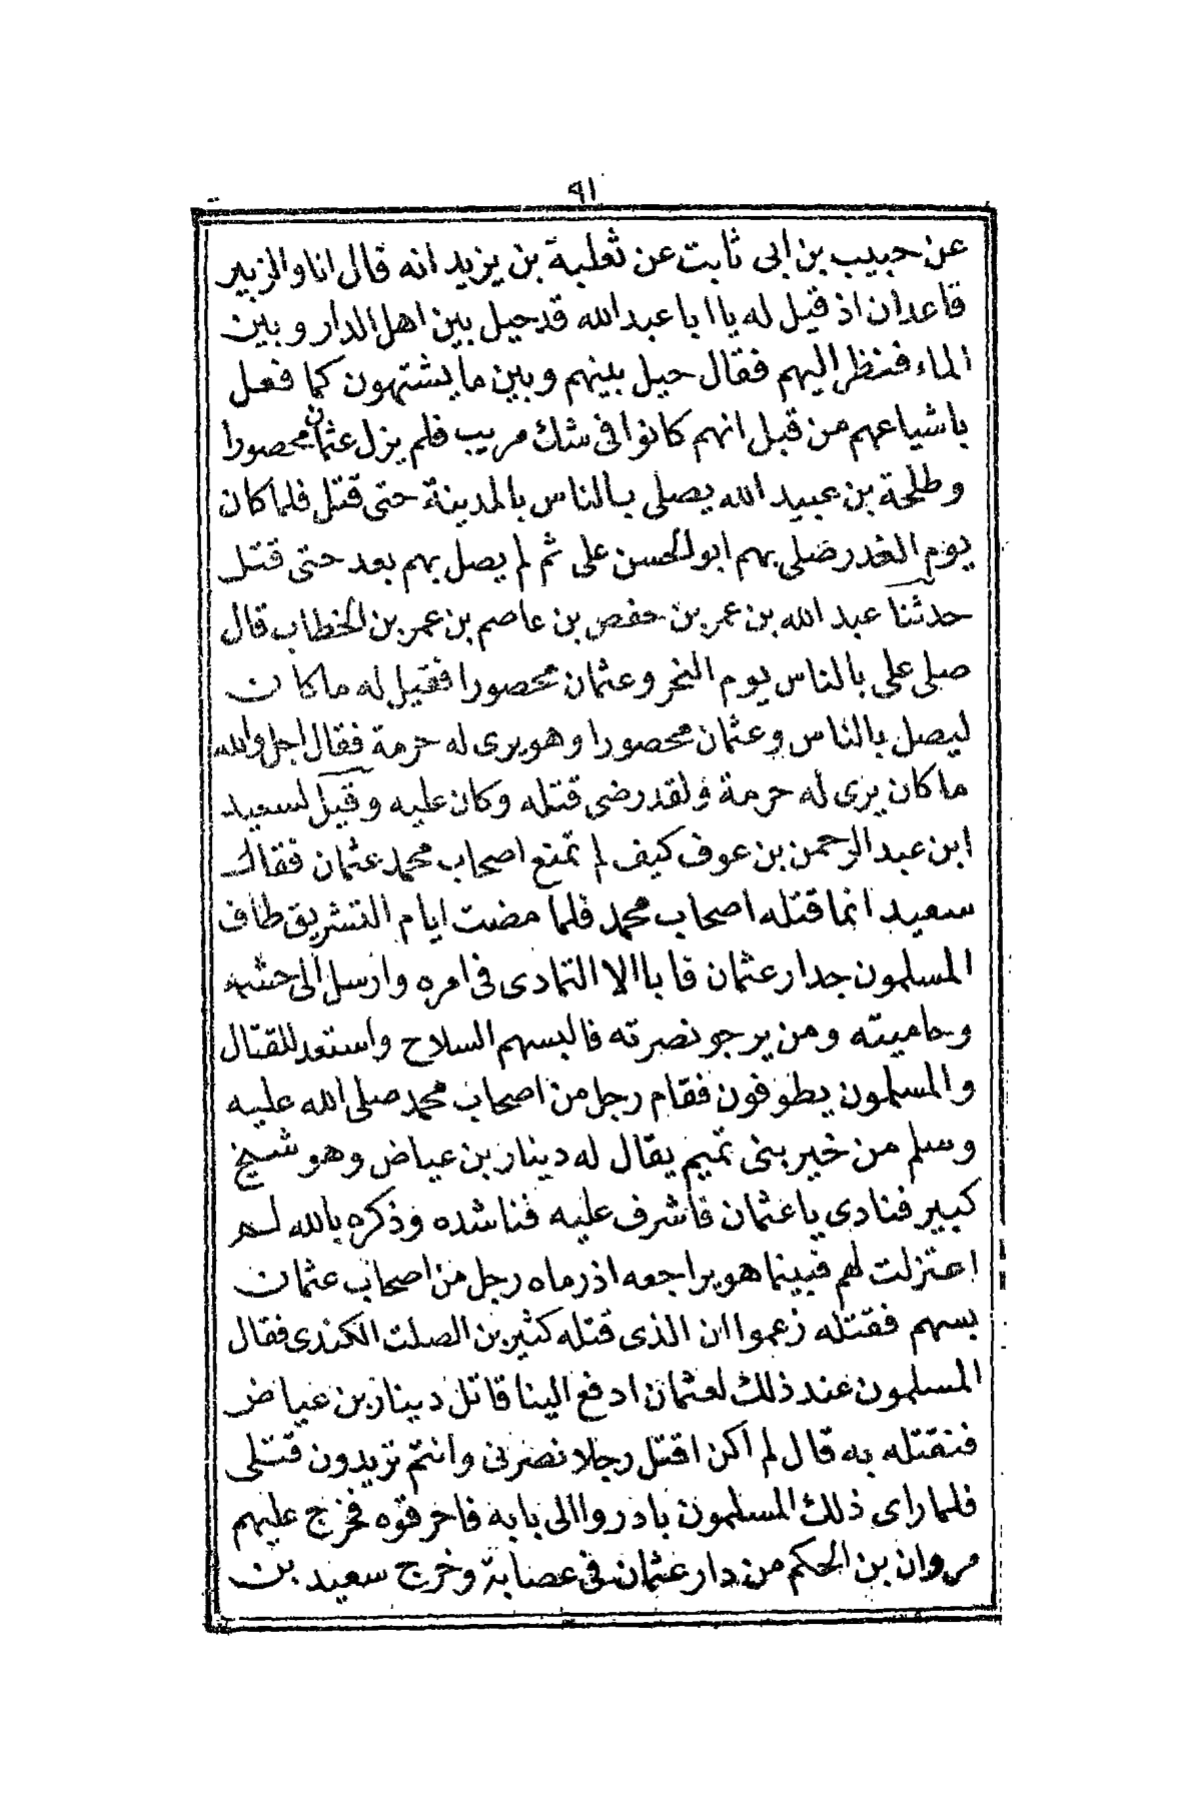 ٩١
عن حبيب بن ابى ثابت عن ثعلبة بن يزيد انه قال انا والزبير
قاعدان اذ قيل له يا ابا عبد الله قد حيل بين اهل الدار وبين
الماء فنظر اليهم فقال حيل بينهم وبين ما يشتهون كما فعل
باشياعهم من قبل انهم كانوا فى شك مريب فلم يزل عثمان محصورا
وطلحة بن عبيد الله يصلى بالناس بالمدينة حتى قتل فلما كان
يوم الغدر صلى بهم ابو الحسن على ثم لم يصل بهم بعد حتى قتل
حدثنا عبد الله بن عمر بن حفص بن عاصم بن عمر بن الخطاب قال
صلى على بالناس يوم النحر وعثمان محصورا فقيل له ما كان
ليصل بالناس وعثمان محصورا وهو يرى له حرمة فقال اجل والله
ما كان يرى له حرمة ولقد رضى قتله وكان عليه وقيل لسعيد
ابن عبد الرحمن بن عوف كيف لم تمنع اصحاب محمد عثمان فقال
سعيد انما قتله اصحاب محمد فلما مضت ايام التشريق طاف
المسلمون جدار عثمان فابا الا التمادى فى امره وارسل الى حشمه
وحاميته ومن يرجو نصرته فالبسهم السلاح واستعد للقتال
والمسلمون يطوفون فقام رجل من اصحاب محمد صلى الله عليه
وسلم من خير بنى تميم يقال له دينار بن عياض وهو شيخ
كبير فنادى يا عثمان فاشرف عليه فناشده وذكره بالله لم
اعتزلت لهم فبينما هو يراجعه اذ رماه رجل من اصحاب عثمان
بسهم فقتله زعموا ان الذى قتله كثير بن الصلت الكندى فقال
المسلمون عند ذلك لعثمان ادفع الينا قاتل دينار بن عياض
فنقتله به قال لم اكن اقتل رجلا نصرنى وانتم تريدون قتلى
فلما راى ذلك المسلمون بادروا الى بابه فاحرقوه فخرج عليهم
مروان بن الحكم من دار عثمان فى عصابة وخرج سعيد بن